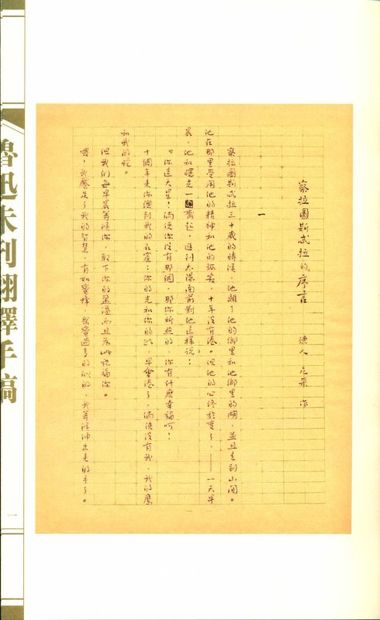 察拉圖斯忒拉的序言
德人 尼采 作
一
察拉圖斯忒拉三十歲的時候,他離了他的鄉里和他鄉里的湖,並且走到山間。
他在那里受用他的精神和他的孤寂,十年沒有倦。但他的心終於變了,——一天早
晨,他和曙光一齊起,進到太陽面前對他這樣說:
『你這大星!倘使你沒有那個,那你所照的,你有什麼幸福呵!
十個年來你總到我的石窟:你的光和你的路,早會倦了,倘使沒有我,我的鷹
和我的蛇。
但我們每早晨等候你,取下你的盈溢而且為此祝福你。
喂!我饜足了我的智慧,有如蜜蜂,聚蜜過多的似的,我等候伸出來的手了。
魯迅未刊翻譯手稿
一